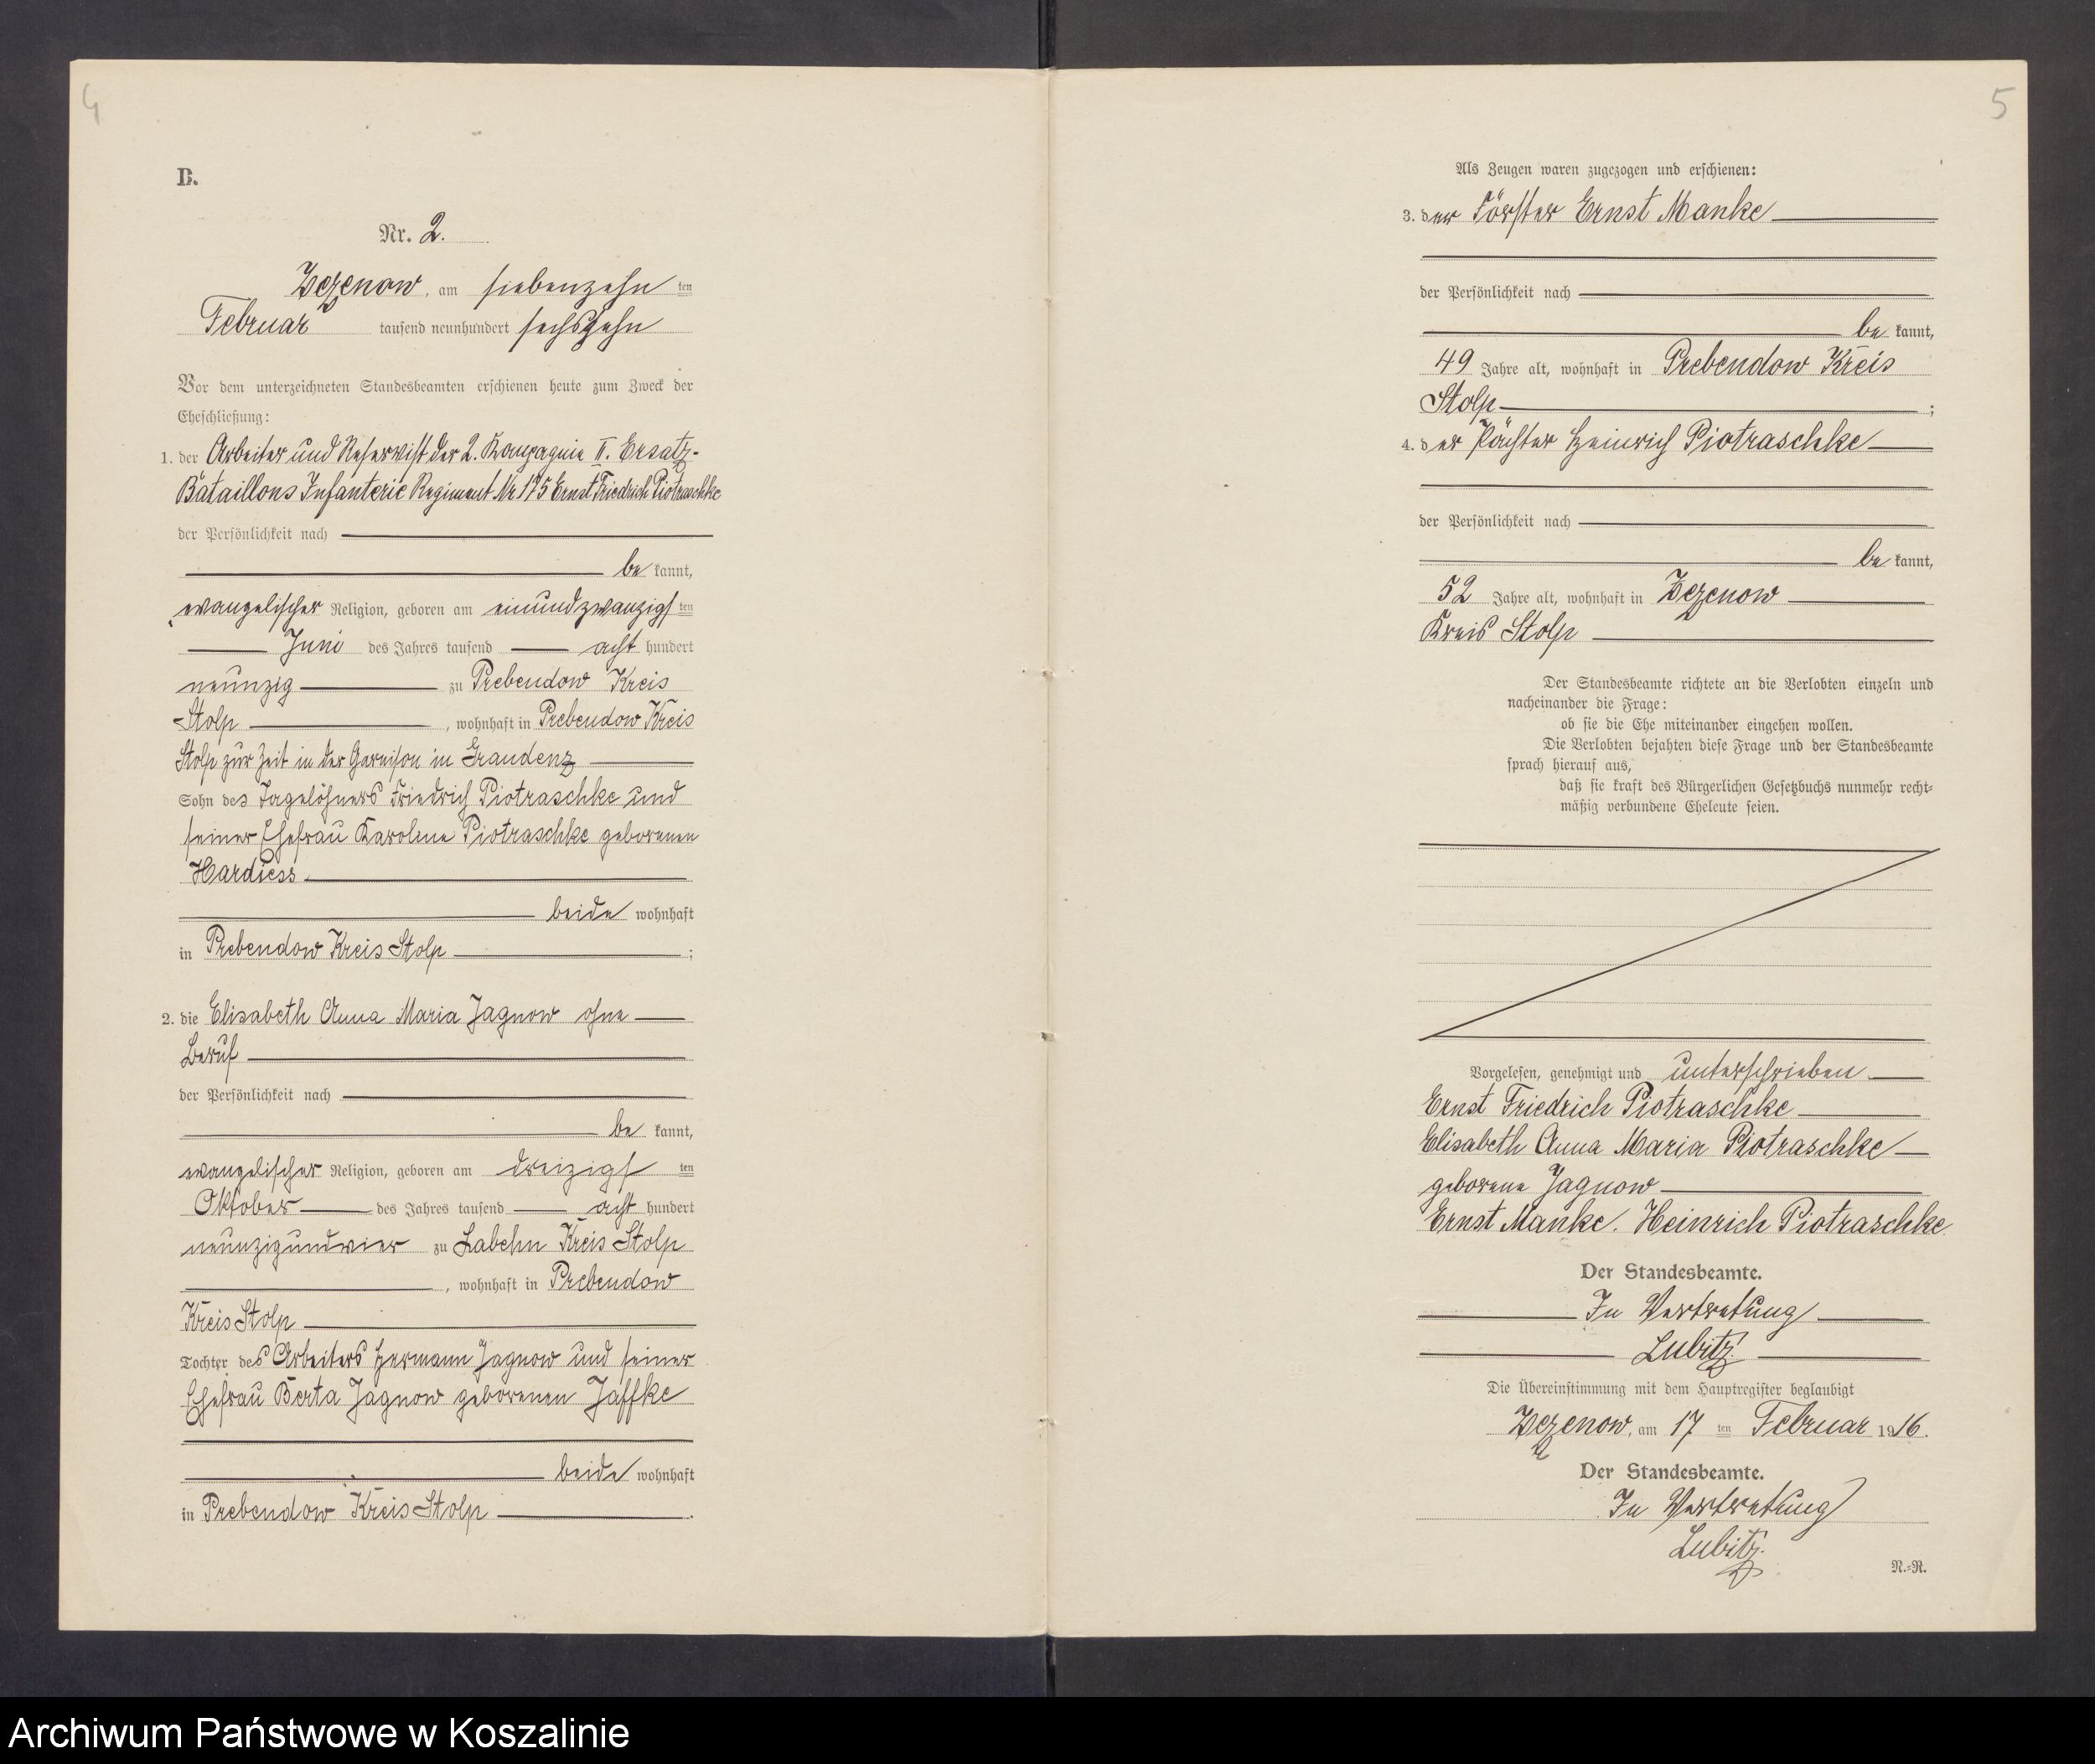 4
B.
Nr. 2.
Zezenow, am siebenzehn ten
Februar tausend neunhundert sechszehn
Vor dem unterzeichneten Standesbeamten erschienen heute zum Zweck der
Eheschließung:
1. der Arbeiter und Reservist der 2. Kompagnie II. Ersatz-
Bataillons Infanterie Regiment Nr 175 Ernst Friedrich Piotraschke
der Persönlichkeit nach
be kannt,
evangelischer Religion, geboren am einundzwanzigsten
Juni des Jahres tausend acht hundert
neunzig zu Prebendow Kreis
Stolp, wohnhaft in Prebendow Kreis
Stolp zur Zeit in der Garnison in Graudenz
Sohn des Tagelöhners Friedrich Piotraschke und
seiner Ehefrau Karoline Piotraschke geborenen
Hardiess
beide wohnhaft
in Prebendow Kreis Stolp ;
2. die Elisabeth Anna Maria Jagnow ohne
Beruf
der Persönlichkeit nach
be kannt,
evangelischer Religion, geboren am dreizigsten
Oktober des Jahres tausend acht hundert
neunzigundvier zu Labehn Kreis Stolp
, wohnhaft in Prebendow
Kreis Stolp
Tochter des Arbeiters Hermann Jagnow und seiner
Ehefrau Berta Jagnow geborenen Jaffke
beide wohnhaft
in Prebendow Kreis Stolp .
5
Als Zeugen waren zugezogen und erschienen:
3. der Förster Ernst Manke
der Persönlichkeit nach
be kannt,
49 Jahre alt, wohnhaft in Prebendow Kreis
Stolp ;
4. der Pächter Heinrich Piotraschke
der Persönlichkeit nach
be kannt,
52 Jahre alt, wohnhaft in Zezenow
Kreis Stolp
Der Standesbeamte richtete an die Verlobten einzeln und
nacheinander die Frage:
ob sie die Ehe miteinander eingehen wollen.
Die Verlobten bejahten diese Frage und der Standesbeamte
sprach hierauf aus,
daß sie kraft des Bürgerlichen Gesetzbuchs nunmehr recht-
mäßig verbundene Eheleute seien.
Vorgelesen, genehmigt und unterschrieben
Ernst Friedrich Piotraschke
Elisabeth Anna Maria Piotraschke
geborene Jagnow
Ernst Manke. Heinrich Piotraschke.
Der Standesbeamte.
In Vertretung
Lubitz.
Die Übereinstimmung mit dem Hauptregister beglaubigt
Zezenow, am 17 ten Februar 1916.
Der Standesbeamte.
In Vertretung
Lubitz.
N.-R.
Archiwum Państwowe w Koszalinie